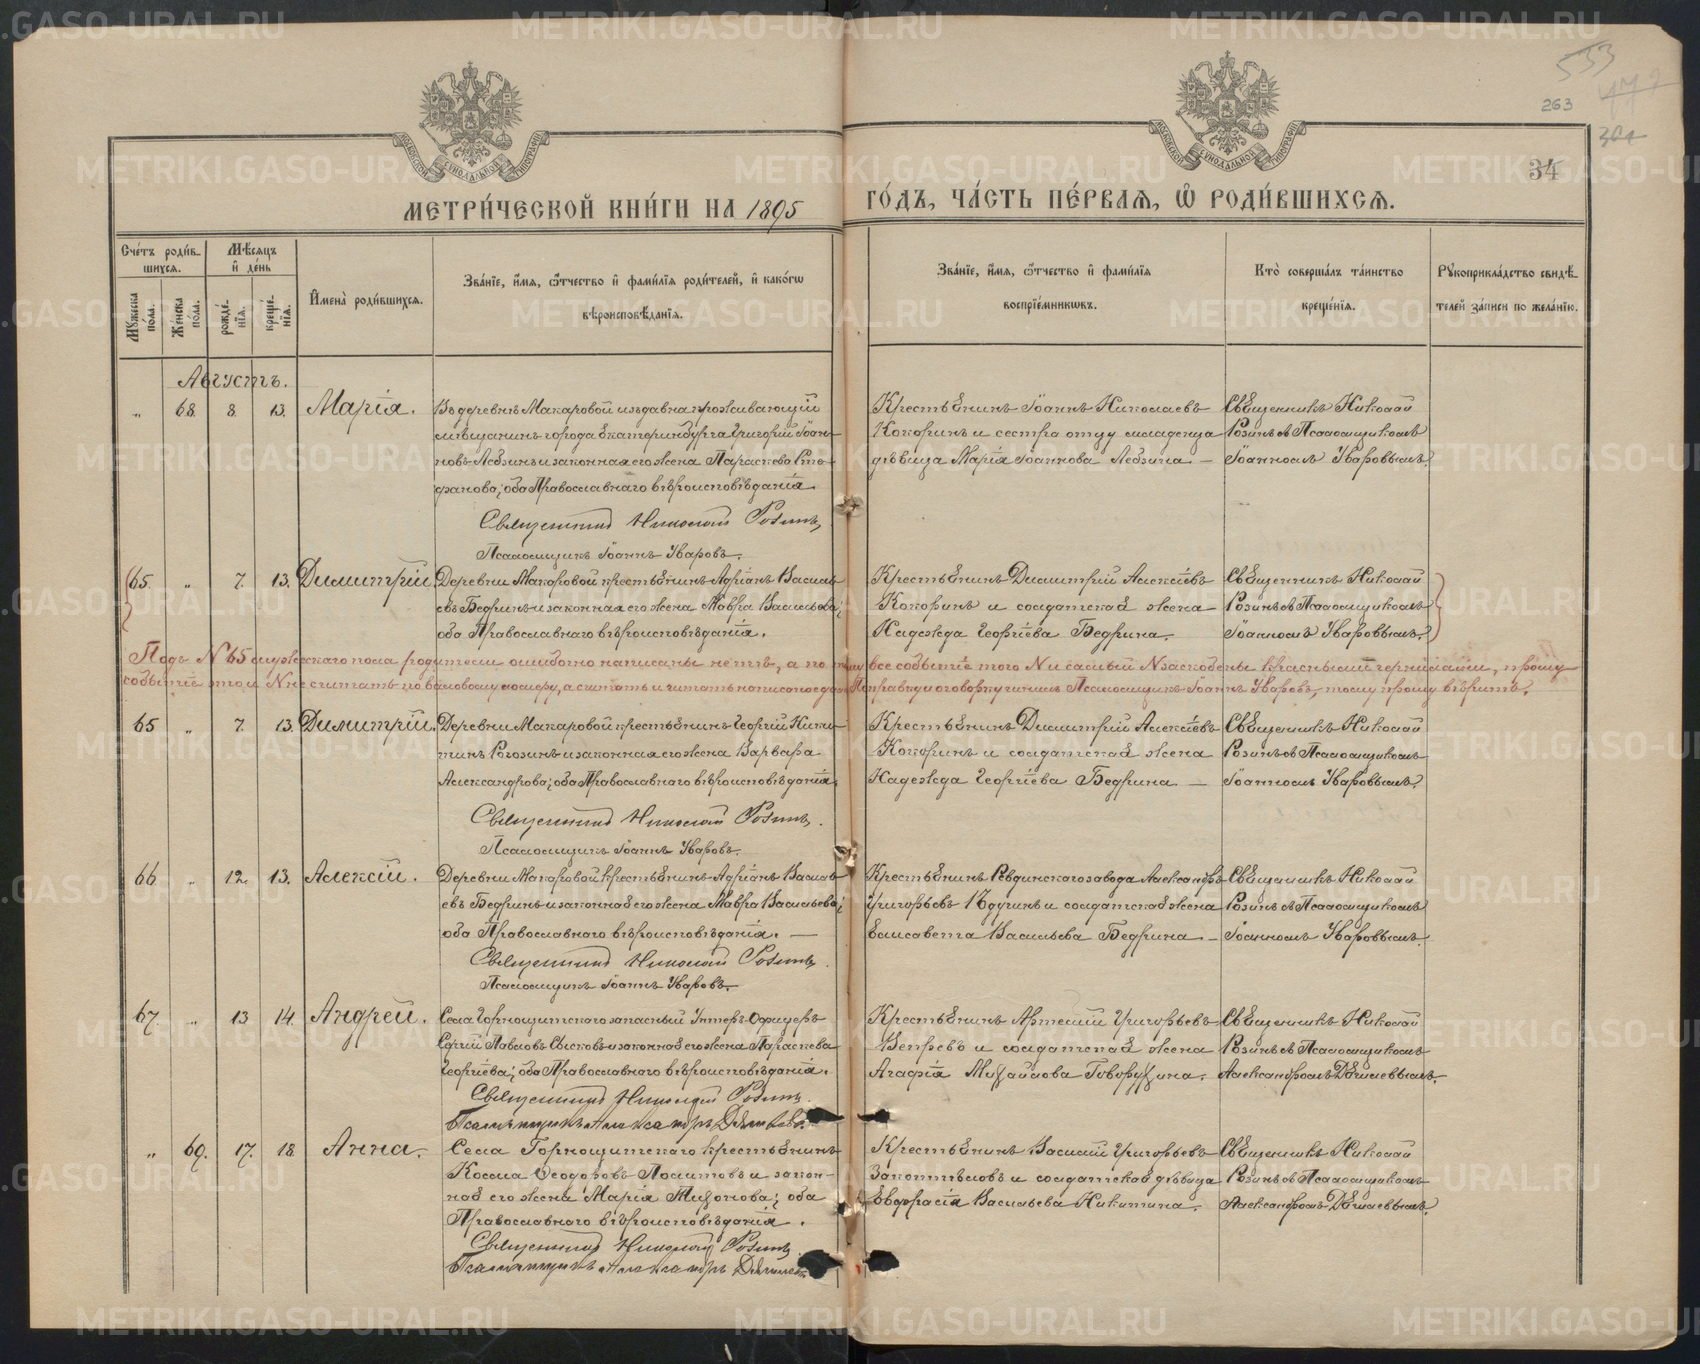 533
472
263
301
34
МОСКОВСКОЙ СѴНОДАЛЬНОЙ ТИПОГРАФІИ
МОСКОВСКОЙ СѴНОДАЛЬНОЙ ТИПОГРАФІИ
МЕТРИ́ЧЕСКОЙ КНИ́ГИ НА 1895 ГО́ДЪ, ЧА́СТЬ ПЕ́РВАЯ, Ѡ РОДИ́ВШИХСЯ.
Сче́тъ роди́вшихся.
Мꙋ́жеска по́ла.
Же́нска по́ла.
Мѣ́сяцъ и҆ де́нь
рожде́нїя.
креще́нїя.
И҆мена̀ роди́вшихся.
Зва́нїе, и҆́мя, ѻ҆́тчество и҆ фами́лїя роди́телей, и҆ како́гѡ вѣроисповѣ́данїя.
Зва́нїе, и҆́мя, ѻ҆́тчество и҆ фами́лїя воспрїе́мникѡвъ.
Кто̀ соверша́лъ та́инство креще́нїя.
Рꙋкоприкла́дство свидѣ́телей за́писи по жела́нїю.
Августъ.
" 68. 8. 13. Марія.
Въ деревнѣ Макаровой издавна проживающій
мѣщанинъ города Екатеринбурга Григорій Іоан-
новъ Лебзинъ и законная его жена Параскева Сте-
фанова; оба Православнаго вѣроисповѣданія.
Священникъ Николай Розинъ
Псаломщикъ Іоаннъ Уваровъ.
Крестьянинъ Іоаннъ Николаевъ
Кокоринъ и сестра отцу младенца
дѣвица Марія Іоаннова Лебзина. —
Священникъ Николай
Розинъ съ Псаломщикомъ
Іоанномъ Уваровымъ.
65. " 7. 13. Димитрій.
Деревни Макаровой крестьянинъ Адріанъ Василь-
евъ Бедринъ и законная его жена Мавра Васильева;
оба Православнаго вѣроисповѣданія.
Крестьянинъ Димитрій Алексіевъ
Кокоринъ и солдатская жена
Надежда Георгіева Бедрина.
Священникъ Николай
Розинъ съ Псаломщикомъ
Іоанномъ Уваровымъ.
Подъ N 65 мужескаго пола родители ошибочно написаны не тѣ, а по тому все событіе того N и самый N заскобены красными чернилами, прошу
событіе это и N не считать по валовому номеру, а считать и читать написо Поправку и оговорку чинилъ Псаломщикъ Іоаннъ Уваровъ, тому прошу вѣрить.
65 " 7. 13. Димитрій.
Деревни Макаровой крестьянинъ Георгій Ники-
тинъ Рогозинъ и законная его жена Варвара
Александрова; оба Православнаго вѣроисповѣданія.
Священникъ Николай Розинъ.
Псаломщикъ Іоаннъ Уваровъ.
Крестьянинъ Димитрій Алексіевъ
Кокоринъ и солдатская жена
Надежда Георгіева Бедрина —
Священникъ Николай
Розинъ съ Псаломщикомъ
Іоанномъ Уваровымъ.
66 " 12. 13. Алексій.
Деревни Макаровой крестьянинъ Адріанъ Василь-
евъ Бедринъ и законная его жена Мавра Васильева;
оба Православнаго вѣроисповѣданія. —
Священникъ Николай Розинъ.
Псаломщикъ Іоаннъ Уваровъ.
Крестьянинъ Ревдинскаго завода Александръ
Григорьевъ и солдатская жена
Елисавета Васильева Бедрина —
Священникъ Николай
Розинъ съ Псаломщикомъ
Іоанномъ Уваровымъ.
67. " 13 14. Андрей.
Села Горнощитскаго запасный Унтеръ-Офицеръ
Сергій Павловъ Сысковъ и законная его жена Параскева
Георгіева; оба Православнаго вѣроисповѣданія.
Священникъ Николай Розинъ.
Псаломщикъ Александръ
Крестьянинъ Артемій Григорьевъ
Вепревъ и солдатская жена
Агафія Михайлова Говорухина.
Священникъ Николай
Розинъ съ Псаломщикомъ
Александромъ
" 69. 17. 18. Анна.
Села Горнощитскаго крестьянинъ
Косма Ѳеодоровъ и закон-
ная его жена Марія Тихонова; оба
Православнаго вѣроисповѣданія.
Священникъ Николай Розинъ
Псаломщикъ Александръ
Крестьянинъ Василій Григорьевъ
и солдатская дѣвица
Евфрасія Васильева Никитина.
Священникъ Николай
Розинъ съ Псаломщикомъ
Александромъ
METRIKI.GASO-URAL.RU